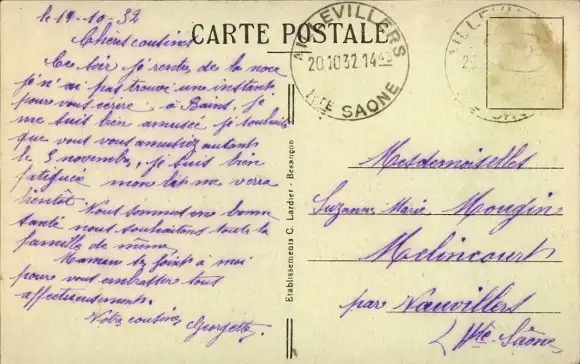 le 19-10-32
CARTE POSTALE
Chères cousines
Ce soir je rentre de la noce
je n'ai pas trouvé une instant
pour vous écrire à Bains, je
me suis bien amusée je souhaite
que vous vous amusiez autant
le 5 novembre, je suis bien
fatiguée mon lit me verra
bientôt. Nous sommes en bonne
santé nous souhaitons toute la
famille de même
Maman se joint à moi
pour vous embrasser tous
affectueusement.
Votre cousine
Georgette.
AILLEVILLERS
20.10 32 14
HTE SAONE
Etablissements C. Lardier - Besançon
Mesdemoiselles
Suzanne Marie Mougin
Melincourt
par Vauvillers
Hte Saône